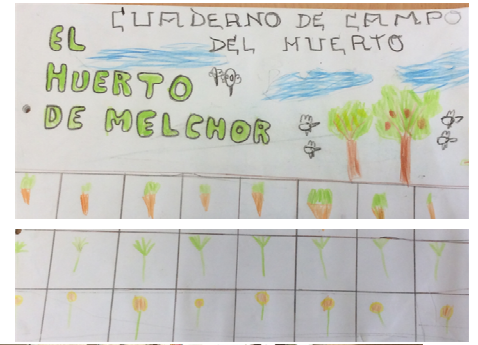 CUADERNO DE CAMPO
DEL HUERTO
EL
HUERTO
DE MELCHOR